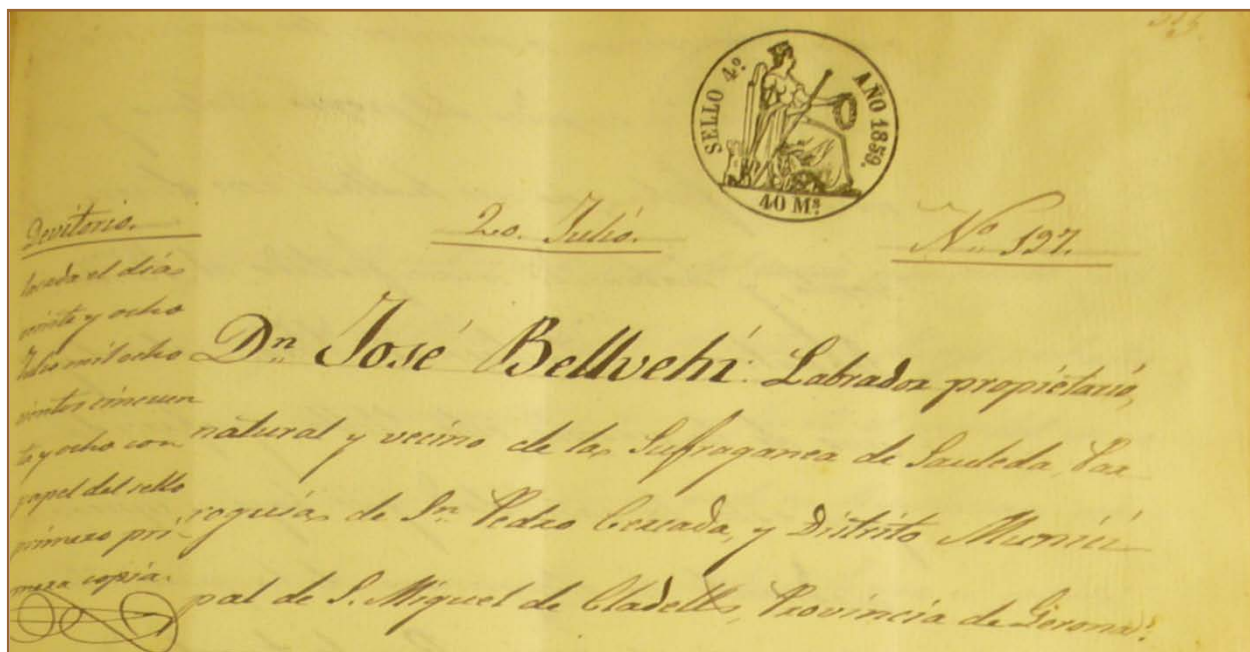 SELLO 4º AÑO 1859.
40 Ms
Devitorio.
20. Julio.
No. 197.
sacada el dia
veinte y ocho
Julio mil ocho
cientos cincuen
ta y ocho con
papel del sello
primero pri
mera copia.
Dn. José Bellvehí: Labrador propietario,
natural y vecino de la Sufraganea de Sauleda, Par
roquia de Sn. Pedro Cercada, y Distrito Munici
pal de S. Miguel de Cladells, Provincia de Gerona: